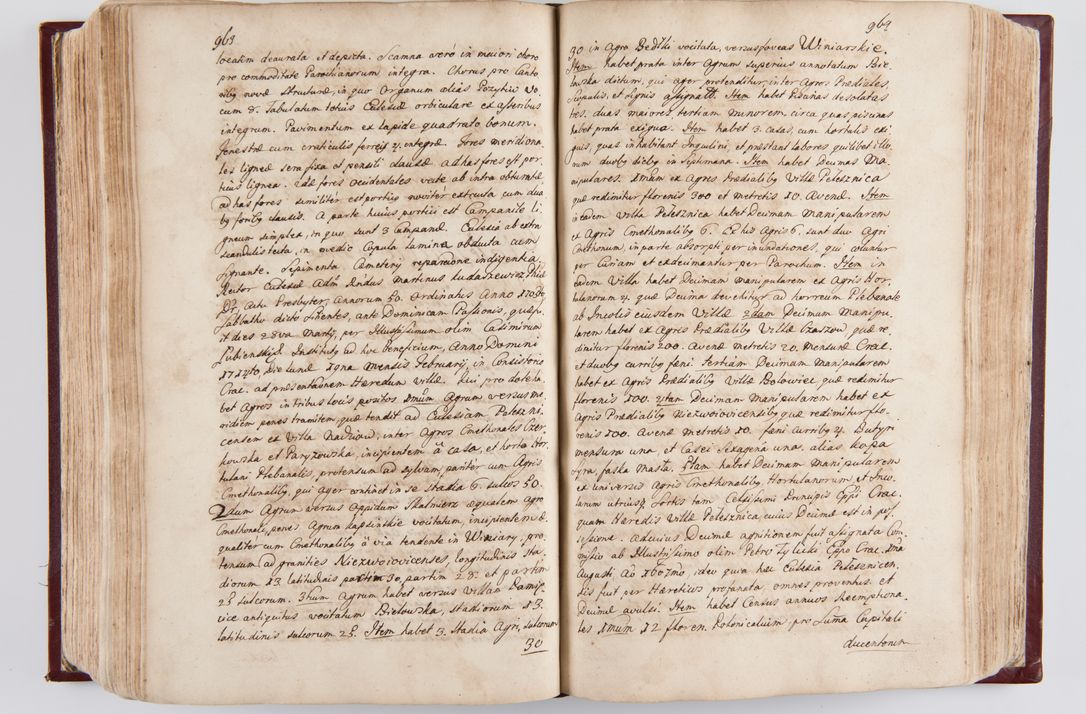 963
locatim deaurata et depicta. Scamna verò in maiori choro
pro commoditate Parochianorum integra. Chorus pro Canto
ribq novæ structuræ, in quo Organum aliàs Pozytiw vo,
cum 8. Tabulatum totius Ecclesiæ orbiculare ex asseribus
integrum. Pavimentum ex lapide quadrato bonum.
Fenestræ cum craticulis ferreis 4. integræ. Fores meridiona,
les ligneæ sera fixa et pensili clausæ. ad has fores est por,
ticus lignea. Aliæ fores Occidentales vecte ab intra obturatæ
ad has fores similiter est porticus noviter extructa cum dua
bq foribq clausis. A parte huius porticus est Campanile li,
gneum simplex, in quo sunt 3 Campanæ. Ecclesia ab extra
scandulis tecta, in medio Cupula lamina obducta cum
Signante. Sepimenta Cæmeterij reparatione indigentia.
Rector Ecclesiæ Adm Rndus Martinus Ludaszewicz Phiæ
Dr, actu Presbyter, Annorum 50. Ordinatus Anno
Sabbatho dicto Sitientes, ante Dominicam Passionis, quæ fu,
it dies 28va Martij, per Illustrissimum olim Casimirum
Łubienski. Institutq ad hoc beneficium, Anno Domini
Die Lunæ mensis Februarij, in Consistorio
Crac. ad præsentationem Hæredum villæ. Qui pro dote ha,
bet Agros in tribus locis positos 1mum Agrum versus me,
ridiem penes tramitem, quæ tendit ad Ecclesiam Pelezni,
censem ex Villa Radziow, inter Agros Cmethonales Czer,
kowska et Paryzowska, incipientem à casa, et horto Hor,
tulani Plebanalis, protensum ad sylvam, pariter cum Agris
Cmethonalibq, qui ager continet in se stadia 6. sulcos 50.
2dum Agrum versus Oppidum Skalmierz æqualem agro
Cmethonali, penes Agrum Kapsinskie vocitatum, incipientem æ,
qualiter cum Cmethonalibq à via tendente in Winiary, pro,
tensum ad granities Niezwoiovicenses, longitudinis sta,
diorum 13. latitudinis partim 30, partim 28. et partim
25 sulcorum. 3tium Agrum habet versus Villam Damie,
vice antiquitus vocitatum Bielowska, stadiorum 13.
latitudinis sulcorum 25. Item habet 3. Stadia Agri, sulcorum
30
964
30 in Agro Bedłki vocitata, versus foveas Winiarskie.
Item habet prata inter Agrum superius annotatum Bie,
lowska dictum, qui ager protenditur, inter Agros Prædiales,
Scopulis, et signis assignatt. Item habet Piscinas desolatas
tes. duas maiores, tertiam minorem, circa quas piscinas
habet prata exigua. Item habet 3. casas, cum hortulis exi,
guis, quas inhabitant Inquilini, et præstant labores quilibet illo,
rum duobq diebq in Septimana. Item habet Decimas Ma,
nipulares. 1mam ex Agris Prædialibq Villæ Pelesznica
quæ redimitur florenis 300 et metretis 10. Avenæ. Item
in eadem Villa Pelesznica habet Decimam Manipularem
ex Agris Cmethonalibq 6. Ex his Agris 6. sunt duo Agri
Cmethonum, in parte absorpti per inundationes, qui coluntur
per Curiam et exdecimantur per Parochum. Item in
eadem Villa habet Decimam manipularem ex Agris Hor,
tulanorum 4. quæ Decima devehitur ad horreum Plebanale
ab Incolis eiusdem Villæ. 2dam Decimam Manipu,
larem habet ex Agris Prædialibq Villæ Czaszow quæ re,
dimitur florenis 200. Avenæ metretis 20. mensuræ Crac.
et duobq curribq fæni. Tertiam Decimam Manipularem
habet ex Agris Prædialibq Villæ Bolowiec quæ redimitur
florenis 100. 4tam Decimam Manipularem habet ex
Agris Prædialibq Niezwoiovicensibq quæ redimitur flo,
renis 100. Avenæ metretis 10. fæni curribq 4. Butyri
mensura una, et Casei Sexagena una. aliàs kopa
Syra, faska Masła. 5tam habet Decimam Manipularem
ex universis Agris Cmethonalibq, Hortulanorum, et Inco,
larum utriusq sortis tam Celsissimi Principis Eppi Crac.
quam Hæredis Villæ Pelesznica, cuius Decimæ est in pos,
sessione. ad cuius Decimæ agnitionem fuit assignata Com
missio ab Illustrissimo olim Petro Tylicki Eppo Crac. 1ma
Augusti Ao 1607mo, ideo quia hæc Ecclesia Pelesznicen,
sis fuit per Hæreticos profanata, omnes proventus et
Decimæ avulsi. Item habet Census annuos reemptiona,
les 1mum 12 floren. Polonicalium pro Suma Capitali
ducentorum